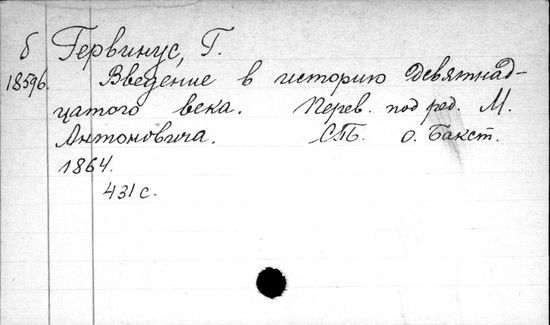 б Гервинус, Г.
18596. Введение в историю девятнад-
цатого века. Перев. под ред. М.
Антоновича. СПБ. О. Бакст.
1864.
431 с.